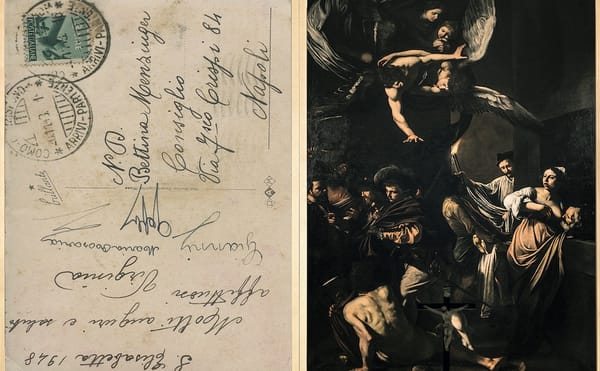 ARRIVI-PARTENZE
COMO
brillante
N. D.
Bettina Menzinger
Consiglio
Via Fco Crispi 84
Napoli
S. Elisabetta 1948
Molti auguri e saluti
affettuosi Virginia
Gianni